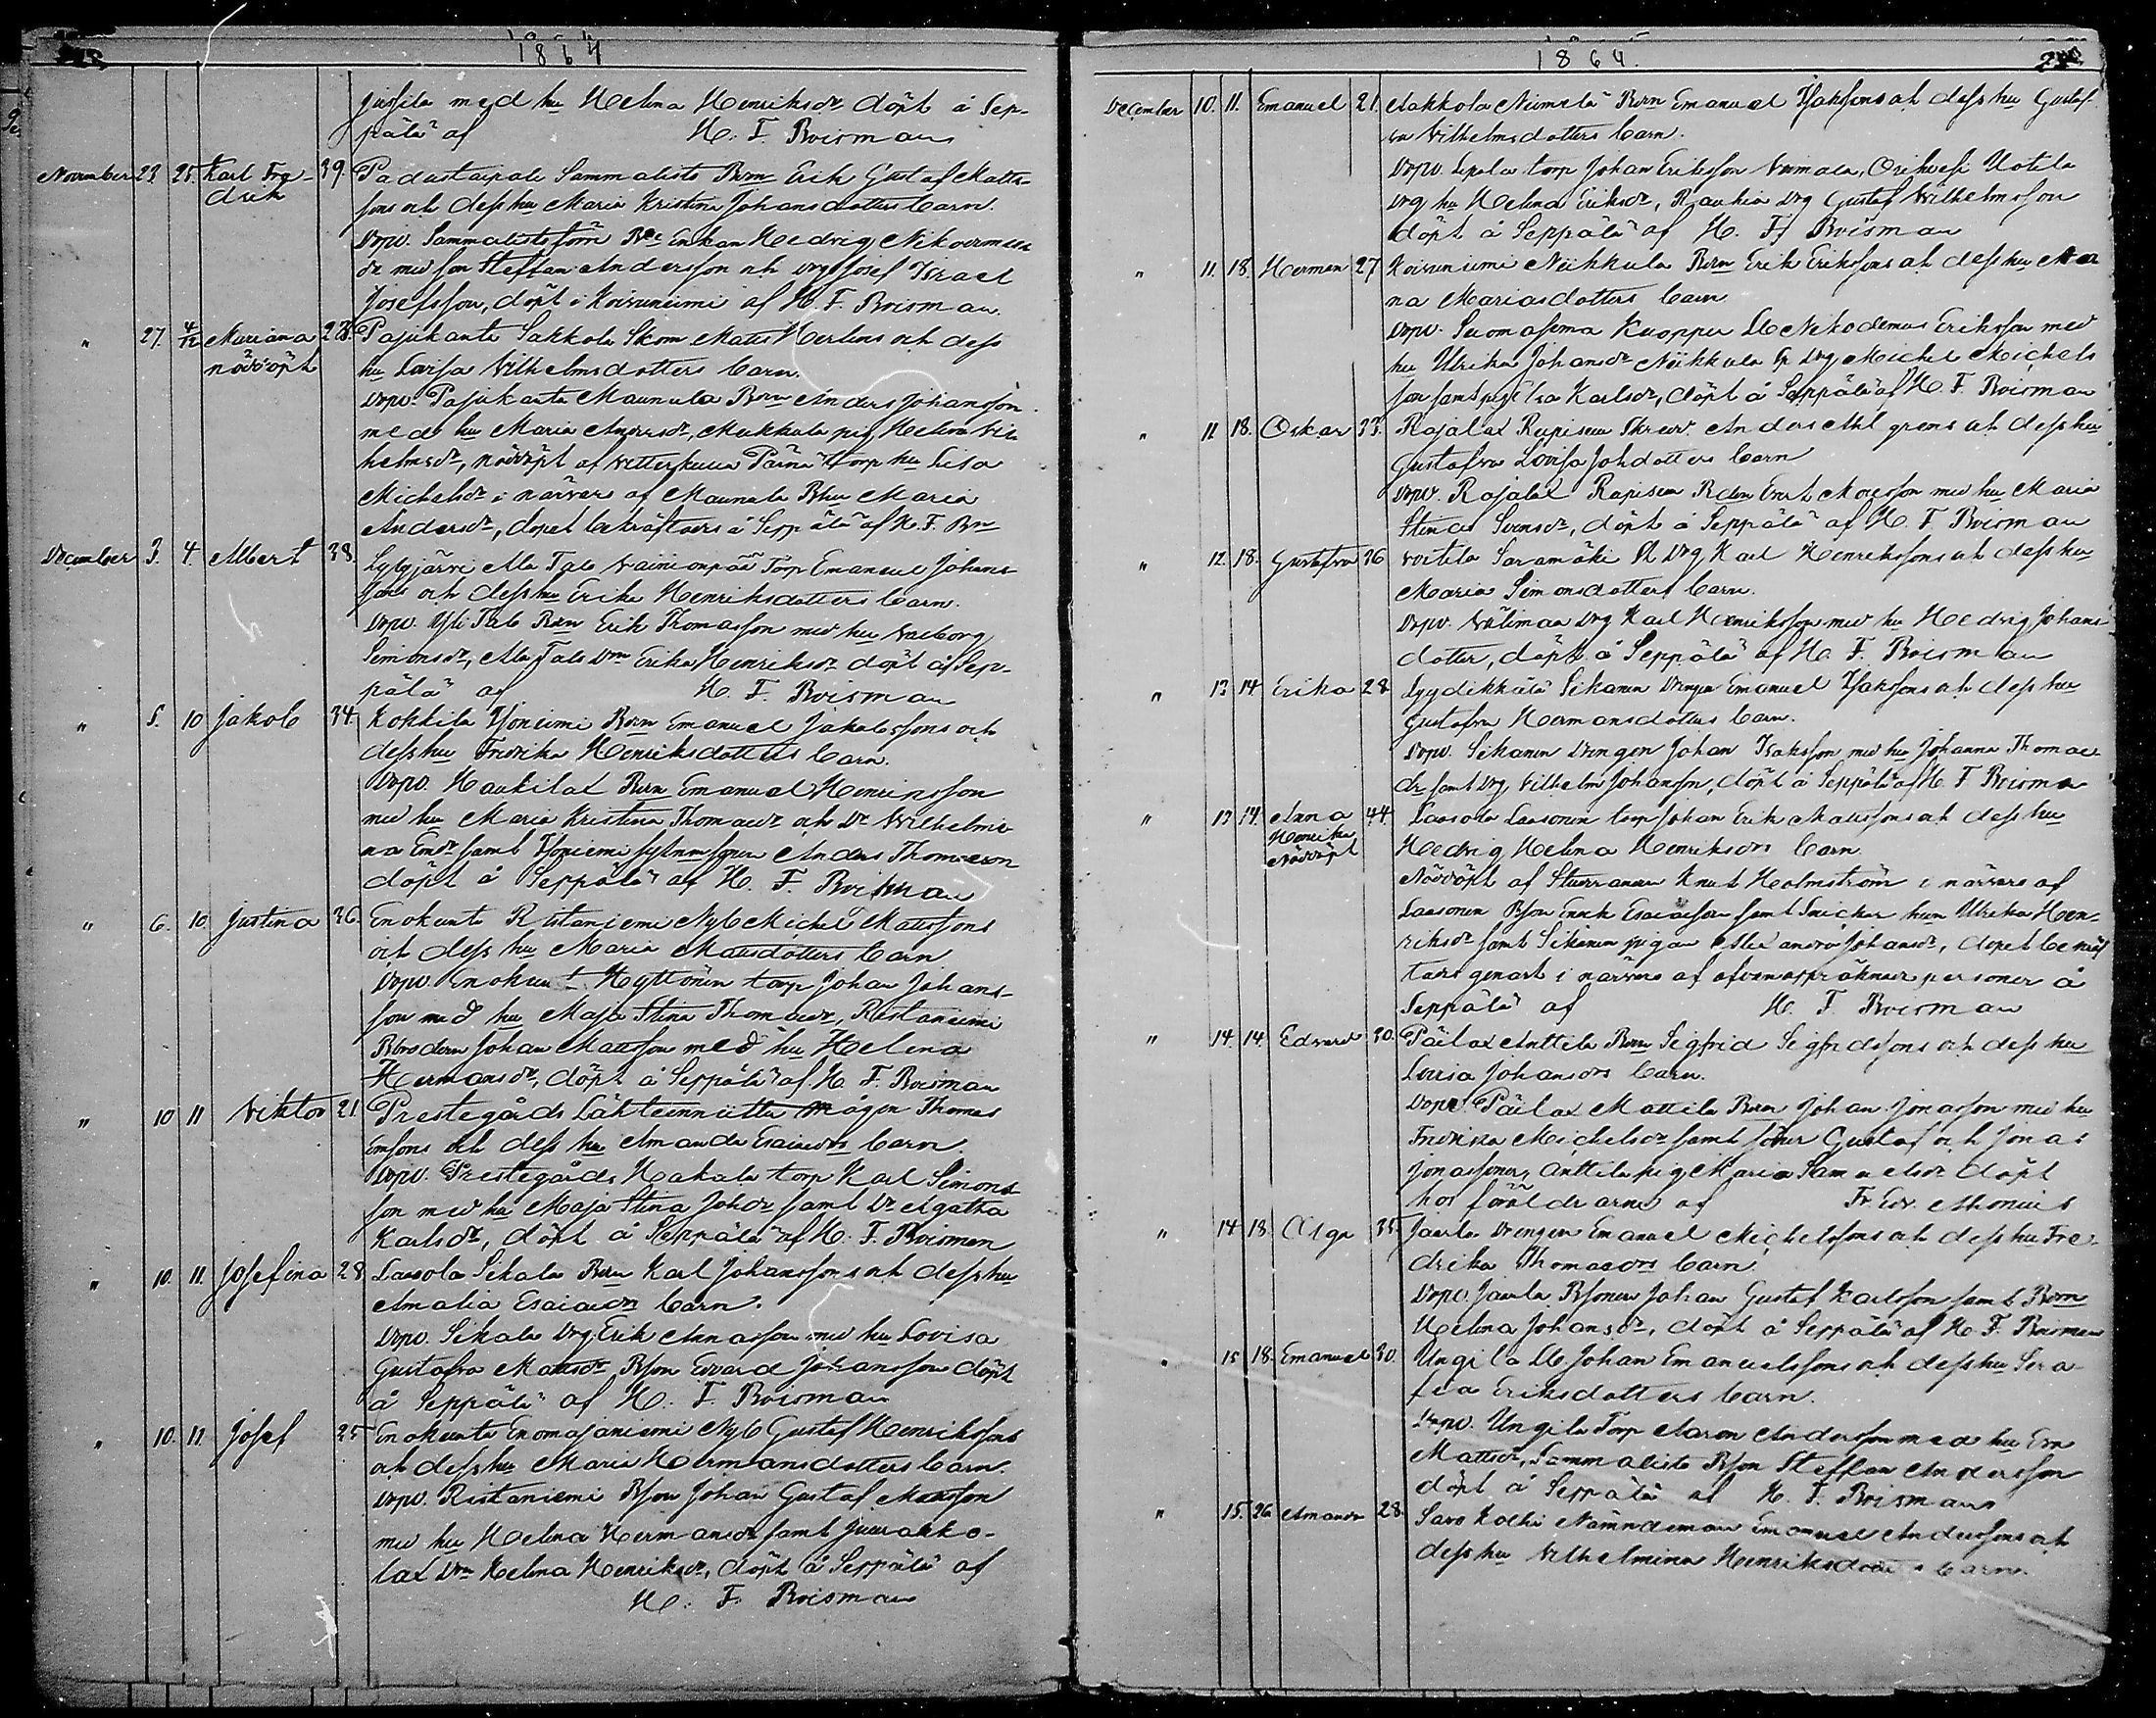 1864
Jussila med hu Helena Henriksdr döpt å Sep-
pälä af H. F. Boisman
November 23. 25. Karl Fre- 39. Padastaipale Sammalisto Bdn Erik Gustaf Matts-
drik sons och dess hu Maria Kristina Johansdotters barn.
Dopv. Sammalisto förra Enkan Hedvig Nikodemus
dr med son Steffan Andersson och drg Josef Israel
Josefsson, döpt i Koivuniemi af H. F. Boisman
" 27. 4/12 Mariana 28. Pajukanta Sakkola Skom Matts Herlins och dess
nöddöpt hu Lovisa Vilhelmsdotters barn.
Dopv. Pajukanta Maunula Bdn Anders Johansson
med hu Maria Andersdr, Mukkala pig Helena Vil
helmsdr, nöddöpt af Torp hu Lisa
Michelsdr i närvaro af Maunula Bhu Maria
Andersdr, dopet bekräftades å Seppälä af H. F. Bn
December 3. 4. Albert 38. Sylvjärvi Ala Talo Vainionpää Torp Emanuel Johans-
sons och dess hu Erika Henriksdotters barn.
Dopv. Yli Talo Bdn Erik Thomasson med hu Valborg
Simonsdr, Ala Talo Dm Erika Henriksdr döpt å Sep-
pälä af H. F. Boisman
" 5. 10 Jakob 34. Kokkila Isoniemi Bdn Emanuel Jakobssons och
dess hu Fredrika Henriksdotters barn.
Dopv. Haukila Bdn Emanuel Henriksson
med hu Maria Kristina Thomasdr och Dr Vilhelmi
na Emdr samt Isoniemi Anders Thomasson
döpt å Seppälä af H. F. Boisman
" 6. 10. Justina 36. Enokunta Ristaniemi Nyb Michel Mattssons
och dess hu Maria Mattsdotters barn
Dopv. Enokunta Hyttönen torp Johan Johans-
son med hu Maja Stina Thomasdr, Ristaniemi
Bbrodern Johan Mattsson med hu Helena
Hermansdr, döpt å Seppälä af H. F. Boisman
" 10 11 Viktor 21. Prestegårds Lähteenniitty mågen Thomas
Emsons och dess hu Amanda Esaiasdrs barn.
Dopv. Prestegårds Hakala torp Karl Simons-
son med hu Maja Stina Johdr samt Dr Agatha
Karlsdr, döpt å Seppälä af H. F. Boisman
" 10. 11. Josefina 28. Laasola Sikala Bdn Karl Johanssons och dess hu
Amalia Esaiasdrs barn.
Dopv. Sikala Drg Erik Annasson med hu Lovisa
Gustafva Mattsdr Bson Edvard Johansson döpt
å Seppälä af H. F. Boisman
" 10. 11. Josef 25 Enokunta Enomajaniemi Nyb Gustaf Henrikssons
och dess hu Maria Hermansdotters barn.
Dopv. Ristaniemi Bson Johan Gustaf Mattsson
med hu Helena Hermansdr samt Juurakko-
la Dm Helena Henriksdr, döpt å Seppälä af
H. F. Boisman
1864.
December 10. 11. Emanuel 21. Sakkola Niemelä Bdn Emanuel Isakssons och dess hu Gustaf-
va Vilhelmsdotters barn.
Dopv. torp Johan Eriksson, Orihvesi Uotila
Drg hu Helena Eriksdr, Rauhia Drg Gustaf Wilhelmsson
döpt å Seppälä af H. F. Boisman
" 11. 18. Herman 27 Koivuniemi Niikkula Bdn Erik Erikssons och dess hu An
na Mariasdotters barn
Dopv. Suomasema Kuoppu Nikodemus Eriksson med
hu Ulrika Johansdr Niikkula Drg Michel Michels
son samt pig Elsa Karlsdr, döpt å Seppälä af H. F. Boisman
" 11 18. Oskar 33. Rajala Rupisen Skrädd. Anders Ahlgrens och dess hu
Gustafva Lovisa Johdotters barn
Dopv. Rajala Rapisen Bdn Evert Moisesson med hu Maria
Stina Svensdr, döpt å Seppälä af H. F. Boisman
" 12. 18. Gustafva 36 Voitila Saramäki Drg Karl Henrikssons och dess hu
Maria Simonsdotters barn.
Dopv. Välimaa Drg Karl Henriksson med hu Hedvig Johans-
dotter, döpt å Seppälä af H. F. Boisman
" 13 14 Erika 28 Syydikkälä Sikanen Drengen Emanuel Isakssons och dess hu
Gustafva Hermansdotters barn.
Dopv. Sikanen Drengen Johan Isaksson med hu Johanna Thomas
dr samt Drg Vilhelm Johansson, döpt å Seppälä af H. F. Boisman
" 13 14. Anna 44. Laasola Laasonen torp Johan Erik Mattssons och dess hu
Henrika Hedvig Helena Henriksdrs barn
Nöddöpt Nöddöpt af Knut Holmström i närvaro af
Laasonen Bson Enok Esaiasson samt Snickar hun Ulrika Hen-
riksdr samt Sikanen pigan Alexandra Johansdr, dopet bekräf
tades genast i närvaro af ofvanuppräknade personer å
Seppälä af H. F. Boisman
" 14. 14. Edvard 30. Päilax Anttila Bdn Sigfrid Sigfridssons och dess hu
Lovisa Johansdrs barn.
Dopv. Päilax Mattila Bdn Johan Jonasson med hu
Fredrika Michelsdr samt söner Gustaf och Jonas
Jonassöner, Anttila pig Maria Samuelsdr döpt
hos föräldrarne af Fr. Edv. Alonius
" 14 18. Olga 35. Jaurla Drengen Emanuel Michelssons och dess hu Fre-
drika Thomasdrs barn
Dopv. Jaurla Bsonen Johan Gustaf Karlsson samt Bdm
Helena Johansdr, döpt å Seppälä af H. F. Boisman
" 15 18. Emanuel 30. Ungila Johan Emanuelssons och dess hu Sera-
fia Eriksdotters barn.
Dopv. Ungila Torp Aaron Andersson med hu Eva
Mattsdr, Sammalisto Bson Steffan Andersson
döpt å Seppälä af H. F. Boisman
" 15. 26 Amanda 28. Savo Koski Nämndeman Emanuel Anderssons och
dess hu Vilhelmina Henriksdotters barn.